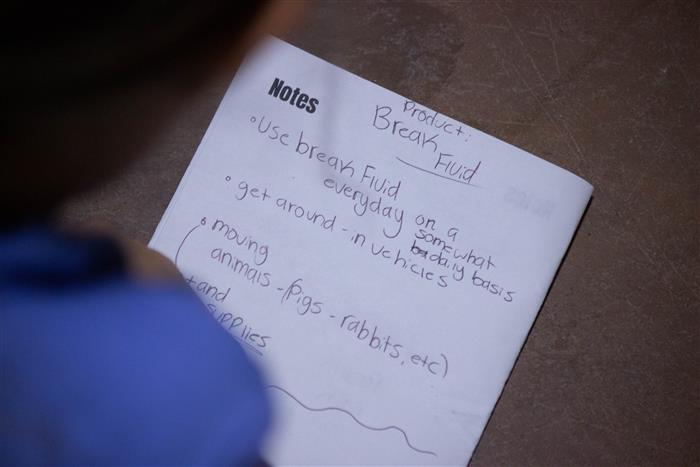 Notes
Product:
Break
Fluid
• Use break Fluid
everyday on a
somewhat
daily basis
• get around - in vehicles
• moving
animals - (pigs - rabbits, etc)
+ and
supplies